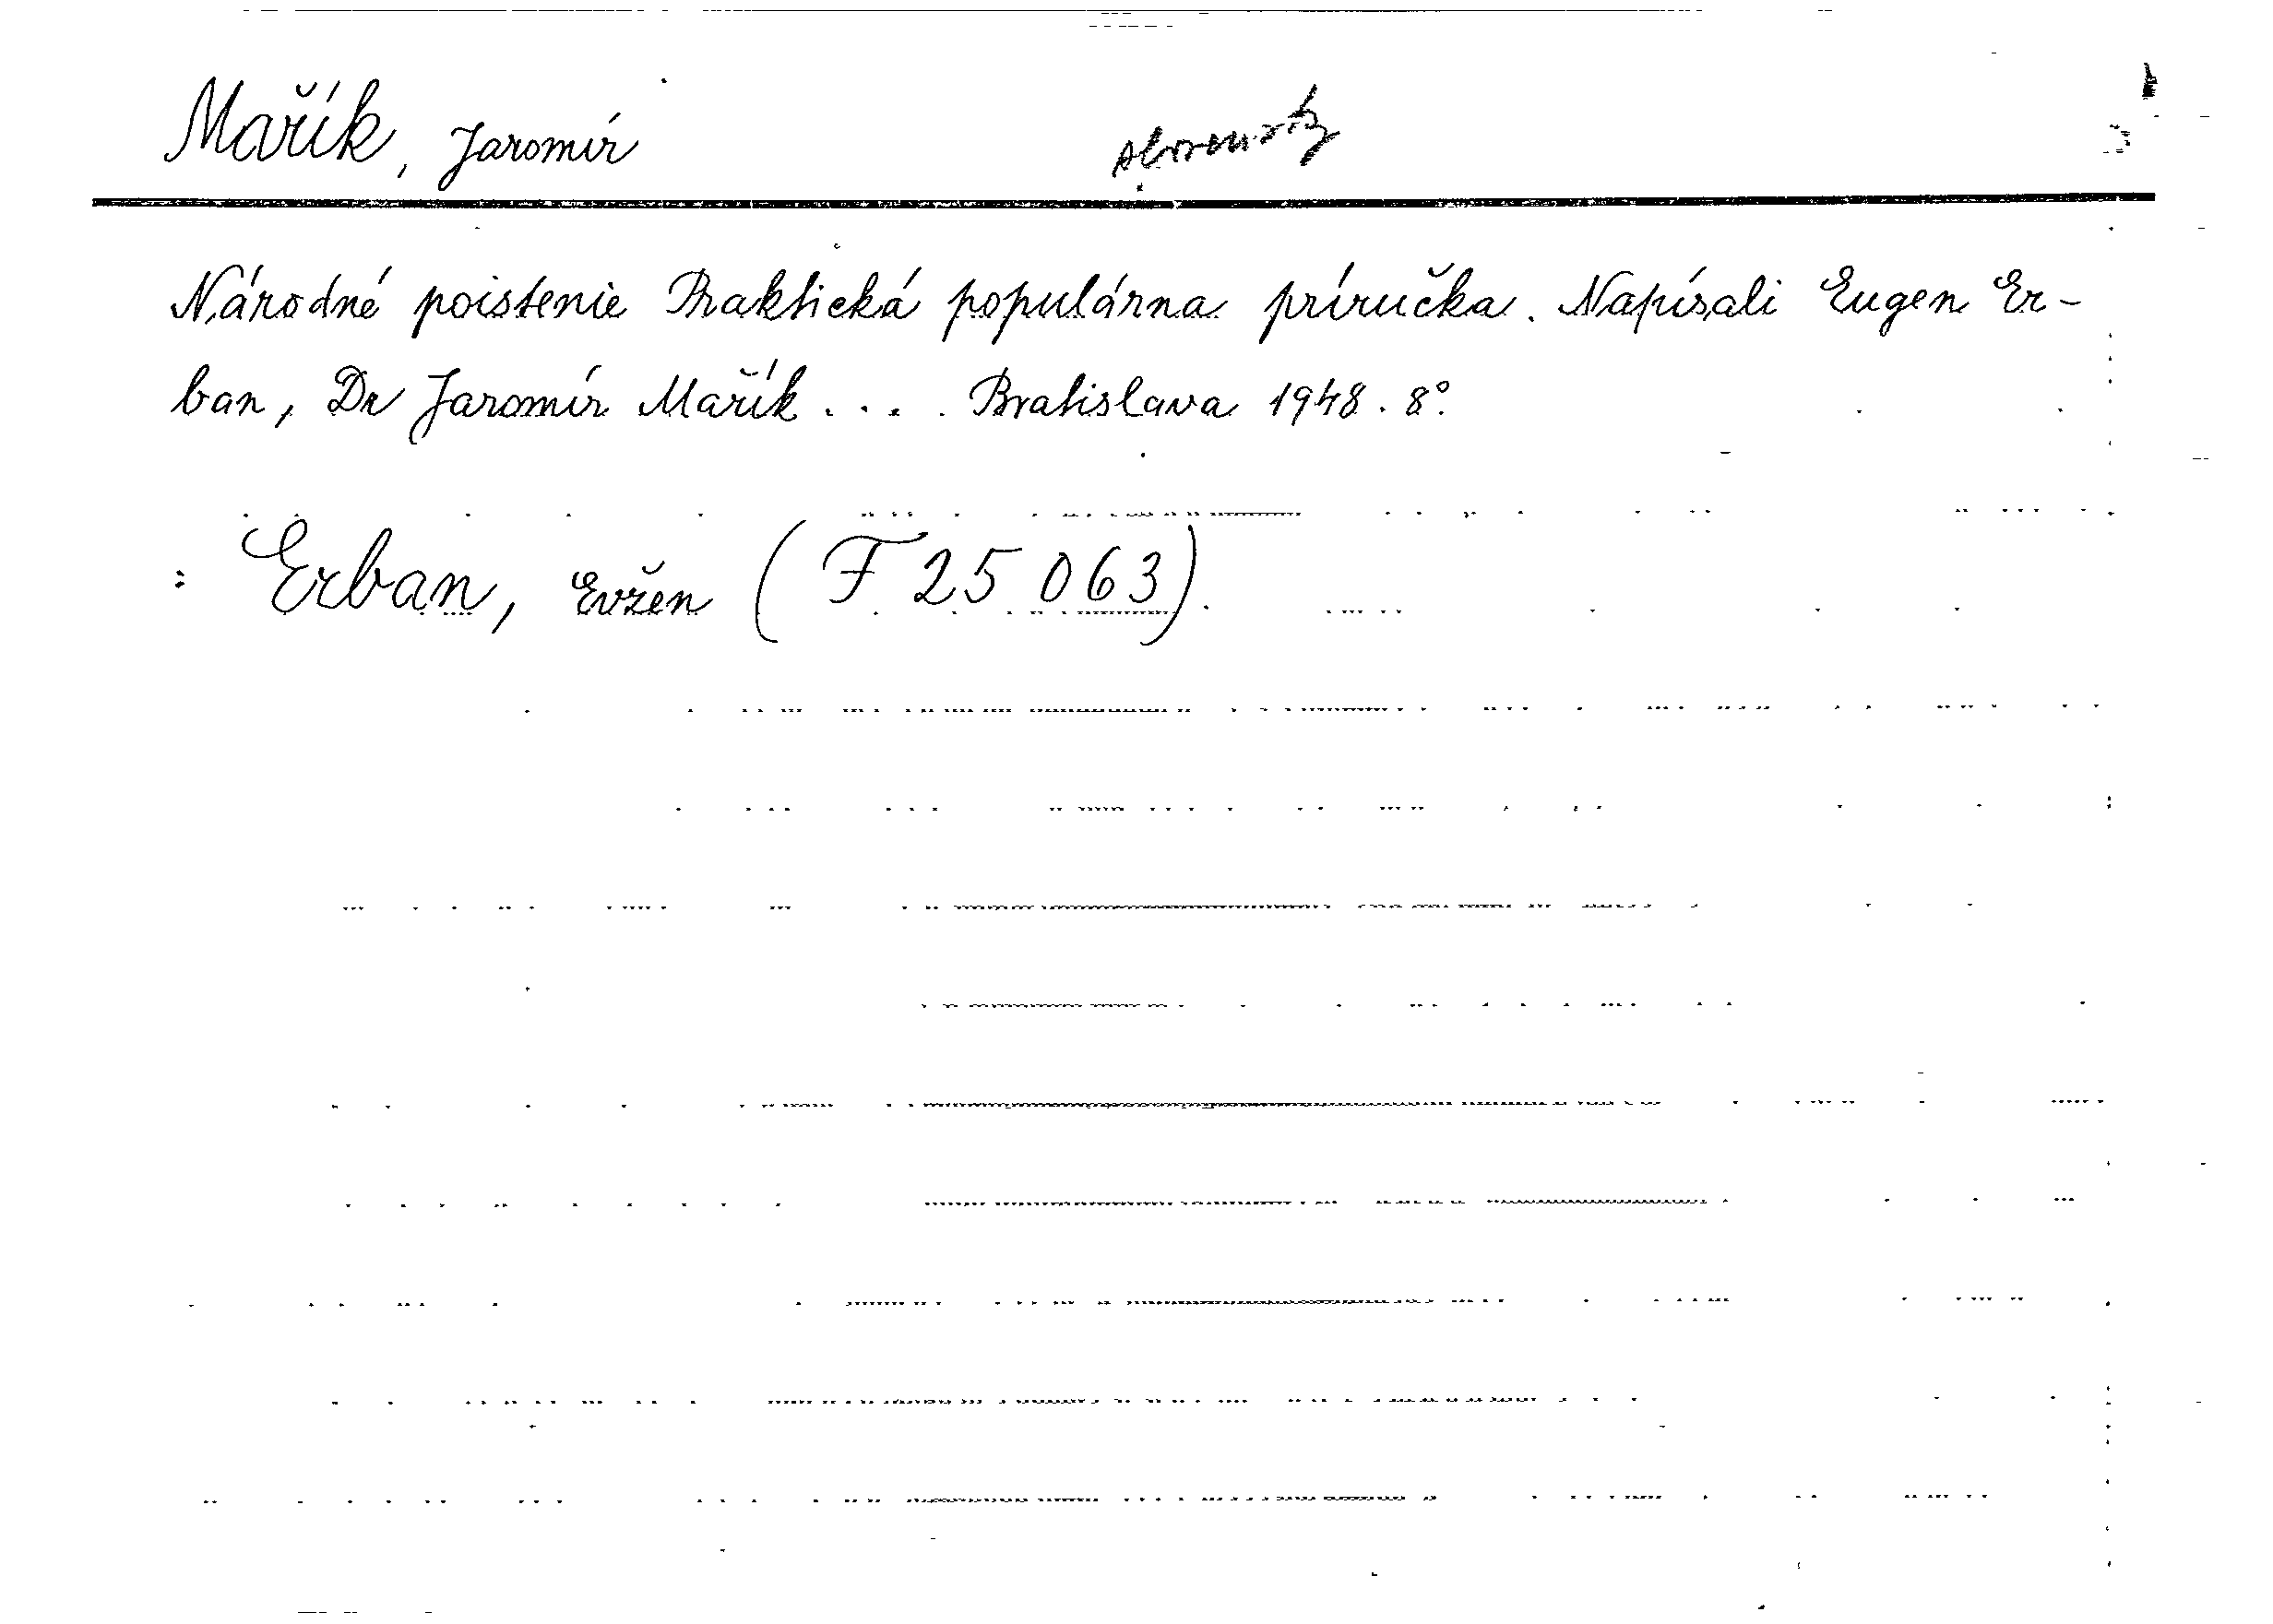 Mařík, Jaromír
Národné poistenie Praktická populárna príručka. Napísali Eugen Er-
ban, Dr Jaromír Mařík . . . . Bratislava 1948. 8°.
: Erban, Evžen (F 25 063).